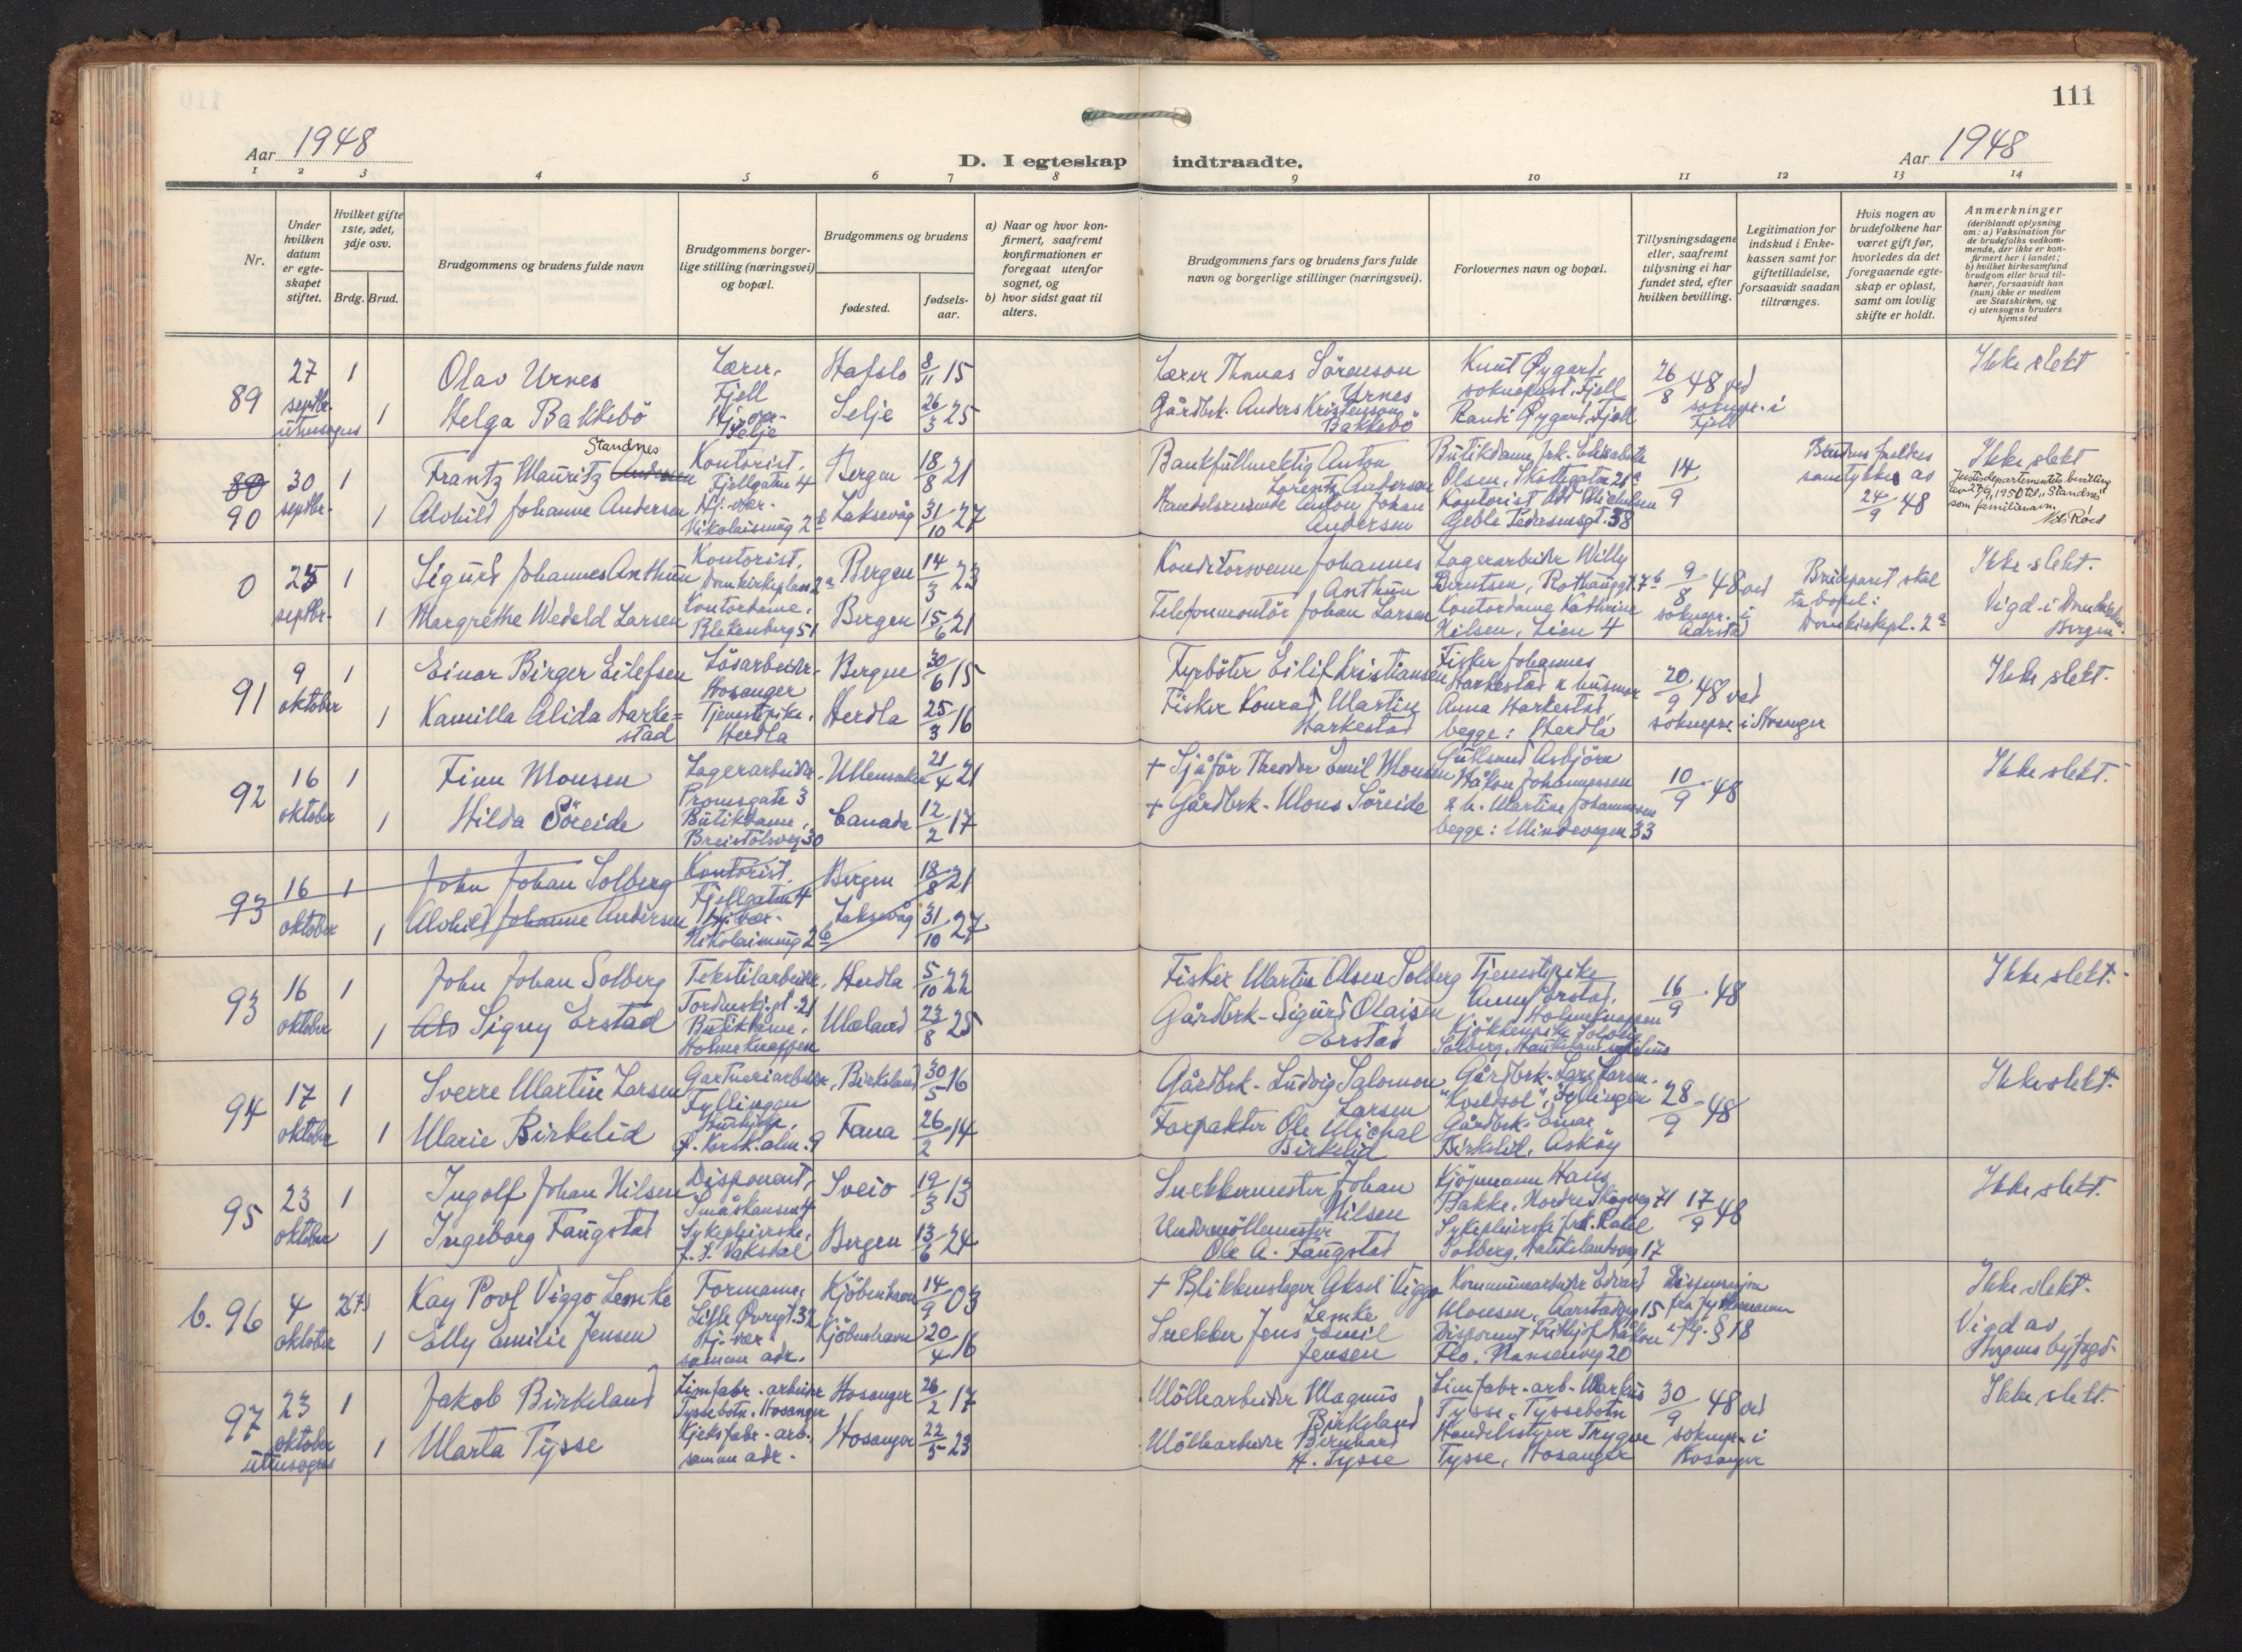 111
Aar 1948
D. I egteskap indtraadte.
Aar 1948
1 2 3 4 5 6 7 8 9 10 11 12 13 14
Nr.
Under hvilken datum er egte-skapet stiftet.
Hvilket gifte 1ste, 2det, 3dje osv.
Brdg. Brud.
Brudgommens og brudens fulde navn
Brudgommens borger-
lige stilling (næringsvei)
og bopæl.
Brudgommens og brudens
fødested.
fødsels-
aar.
a) Naar og hvor kon-
firmert, saafremt
konfirmationen er
foregaat utenfor
sognet, og
b) hvor sidst gaat til
alters.
Brudgommens fars og brudens fars fulde
navn og borgerlige stillinger (næringsvei).
Forlovernes navn og bopæl.
Tillysningsdagene
eller, saafremt
tillysning ei har
fundet sted, efter
hvilken bevilling.
Legitimation for
indskud i Enke-
kassen samt for
giftetilladelse,
forsaavidt saadan
tiltrænges.
Hvis nogen av
brudefolkene har
været gift før,
hvorledes da det
foregaaende egte-
skap er opløst,
samt om lovlig
skifte er holdt.
Anmerkninger
(deriblandt oplysning
om: a) Vaksination for
de brudefolks vedkom-
mende, der ikke er kon-
firmert her i landet;
b) hvilket kirkesamfund
brudgom eller brud til-
hører, forsaavidt han
(hun) ikke er medlem
av Statskirken, og
c) utensogns bruders
hjemsted
89 27 septbr. utensogns 1 1
Olav Urnes
Helga Bakkebö
Lærer,
Fjell
Hj.vær.
Selje
Hafslo 8/11 15
Selje 26/3 25
Lærer Thomas Sörenson
Urnes
Gårdbrk. Anders Kristenson
Bakkebö
Knut Øygard,
sokneprest, Fjell
Randi Øygard, Fjell
26/8 48 ved
soknepr. i
Fjell
Ikke slekt
89
90 30 septbr. 1 1
Standnes
Frantz Mauritz Andersen
Alvhild Johanne Andersen
Kontorist,
Fjellgaten 4
Hj.vær.
Nikolaismug 2 b
Bergen 18/8 21
Laksevåg 31/10 27
Bankfullmektig Anton
Lorentz Andersen
Handelsreisende Anton Johan
Andersen
Butikdame frk. Elisabeth
Olsen, Skottegaten 21a
Kontorist Michelsen
Geble Pedersensgt. 38
14/9
samtykke av
24/9 48
Ikke slekt
Justisdepartementets bevilling
av 27/9 1950 til "Standnes"
som familienavn.
0 25 septbr. 1 1
Sigurd Johannes Anthun
Margrethe Wedeld Larsen
Kontorist,
Domkirkeplass 2a
Kontordame,
Blekenberg 51
Bergen 14/3 23
Bergen 15/6 21
Konditorsvenn Johannes
Anthun
Telefonmontör Johan Larsen
Lagerarbeider Willy
Berntsen, Rothauggt. 7b
Kontordame Kathrine
Nilsen, Lien 4
9/8 48 ved
soknepr. i
Årstad
Brudeparet skal
ta bopel:
Domkirkepl. 2a
Ikke slekt.
Vigd i Domkirken
Bergen
91 9 oktober 1 1
Einar Birger Eilefsen
Kamilla Alida Harke=
stad
Lösarbeider,
Hosanger
Tjenestpike,
Herdla
Bergen 30/6 15
Herdla 25/3 16
Fyrböter Eilif Kristiansen
Fisker Konrad Martin
Harkestad
Fisker Johannes
Harkestad & husmor
Anna Harkestad
begge: Herdla
20/9 48 ved
soknepr. i Hosanger
Ikke slekt.
92 16 oktober 1 1
Finn Monsen
Hilda Söreide
Lagerarbeider
Promsgate 3
Butikdame,
Breistölsveg 30
Ullensaker 21/4 21
Canada 12/2 17
+ Sjåför Theodor Emil Monsen
+ Gårdbrk. Mons Söreide
Gullsmed Asbjörn
Håkon Johannessen
& h. Martine Johannessen
begge: Mindevegen 33
10/9 48
Ikke slekt.
93 16 oktober 1 1
John Johan Solberg
Alvhild Johanne Andersen
Kontorist,
Fjellgaten 4
Hj.vær.
Nikolaismug 2 b
Bergen 18/8 21
Laksevåg 31/10 27
93 16 oktober 1 1
John Johan Solberg
Alv Signy Erstad
Tekstilarbeider,
Tordenskj.gt. 21
Butikdame,
Holmeknappen
Herdla 5/10 22
Meland 23/8 25
Fisker Martin Olsen Solberg
Gårdbrk. Sigurd Olaisen
Erstad
Tjenestpike
Anny Erstad,
Holmeknappen
Kjökkenpike Solveig
Solberg, Haukeland sykehus
16/9 48
Ikke slekt.
94 17 oktober 1 1
Sverre Martin Larsen
Marie Birkelid
Gartneriarbeider,
Fyllingen
Ö. Korsk.alm. 9
Birkeland 30/5 16
Fana 26/2 14
Gårdbrk. Ludvig Salomon
Larsen
Forpakter Ole Michal
Birkelid
Gårdbrk. Lars Larsen,
"Kveldsol", Fyllingen
Gårdbrk. Einar
Birkelid, Asköy
28/9 48
Ikke slekt.
95 23 oktober 1 1
Ingolf Johan Nilsen
Ingeborg Faugstad
Disponent,
Småskansen 4
Sykepleierske,
f. t. Vaksdal
Sveio 19/3 13
Bergen 13/6 24
Snekkermester Johan
Nilsen
Undermöllemester
Ole A. Faugstad
Kjöpmann Hans
Bakke, Nordre Skogveg 71
Sykepleierske frk. Rakel
Solberg, Haukelandsveg 17
17/9 48
Ikke slekt.
b. 96 4 oktober 2(f) 1
Kay Povl Viggo Lemke
Elly Emilie Jensen
Formann,
Lille Øvregt. 32
Hj.vær.
samme adr.
Kjöbenhavn 14/9 03
Kjöbenhavn 20/4 16
+ Blikkenslager Aksel Viggo
Lemke
Snekker Jens Emil
Jensen
Kommunearbeider Edvard
Monsen, Aarstadveg 15
Disponent Fritkjof Håkon
Flo, Nansenveg 20
Dispensasjon
fra fylkesmannen
i flg. § 18
Ikke slekt.
Vigd av
Bergens byfogd.
97 23 oktober utensogns 1 1
Jakob Birkeland
Marta Tysse
Limfabr.arbeider
Tyssebotn, Hosanger
Kjeksfabr.arb.
samme adr.
Hosanger 26/2 17
Hosanger 22/5 23
Möllearbeider Magnus
Birkeland
Möllearbeider Bernhard
H. Tysse
Limfabr.arb. Markus
Tysse, Tyssebotn
Handelsstyrer Trygve
Tysse, Hosanger
30/9 48 ved
soknepr. i
Hosanger
Ikke slekt.